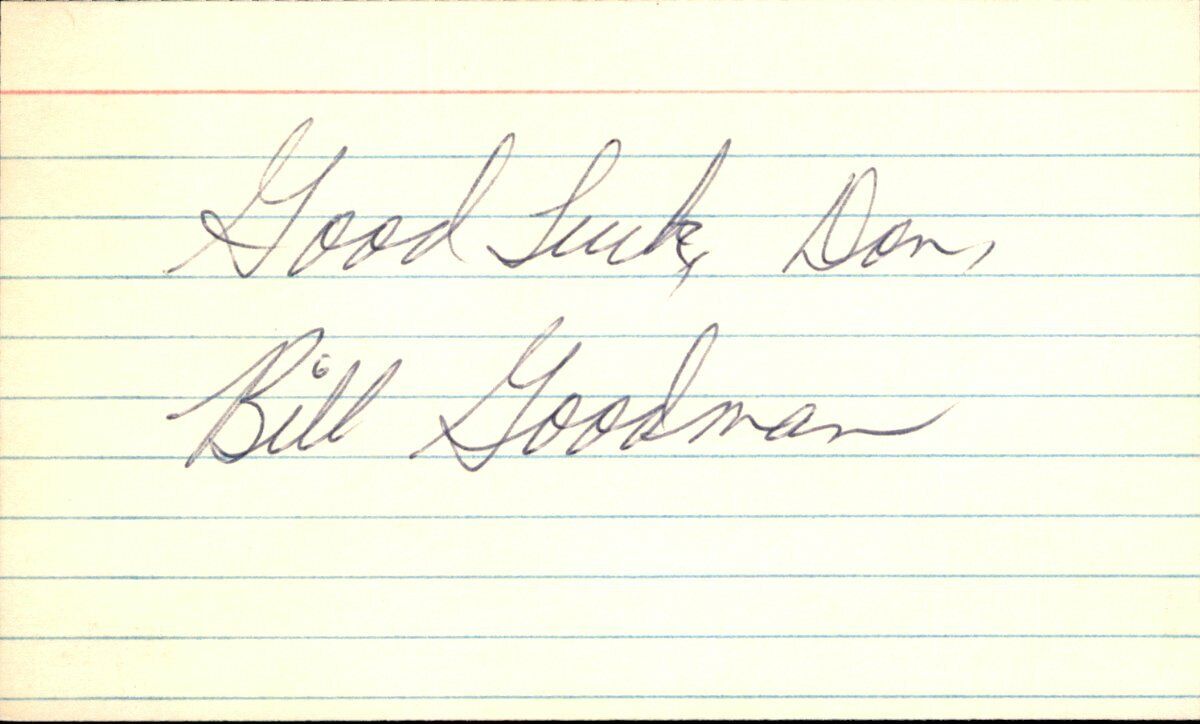 Good Luck, Don,
Bill Goodman